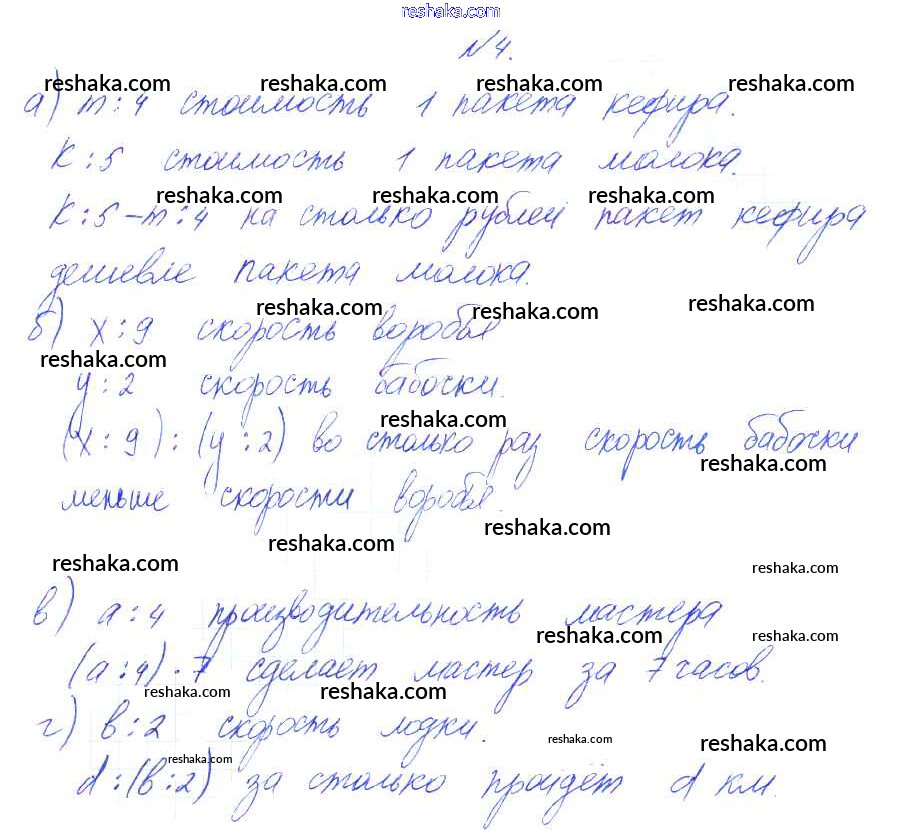 reshaka.com
№4.
reshaka.com reshaka.com reshaka.com reshaka.com
а) m : 4 стоимость 1 пакета кефира.
k : 5 стоимость 1 пакета молока.
reshaka.com reshaka.com reshaka.com
k : 5 – m : 4 на столько рублей пакет кефира
дешевле пакета молока.
reshaka.com reshaka.com reshaka.com
б) x : 9 скорость воробья
reshaka.com
y : 2 скорость бабочки.
reshaka.com
(x : 9) : (y : 2) во столько раз скорость бабочки
reshaka.com
меньше скорости воробья.
reshaka.com
reshaka.com
reshaka.com reshaka.com
в) a : 4 производительность мастера
reshaka.com reshaka.com
(a : 4) · 7 сделает мастер за 7 часов.
reshaka.com reshaka.com
г) b : 2 скорость лодки.
reshaka.com reshaka.com
reshaka.com
d : (b : 2) за столько пройдёт d км.